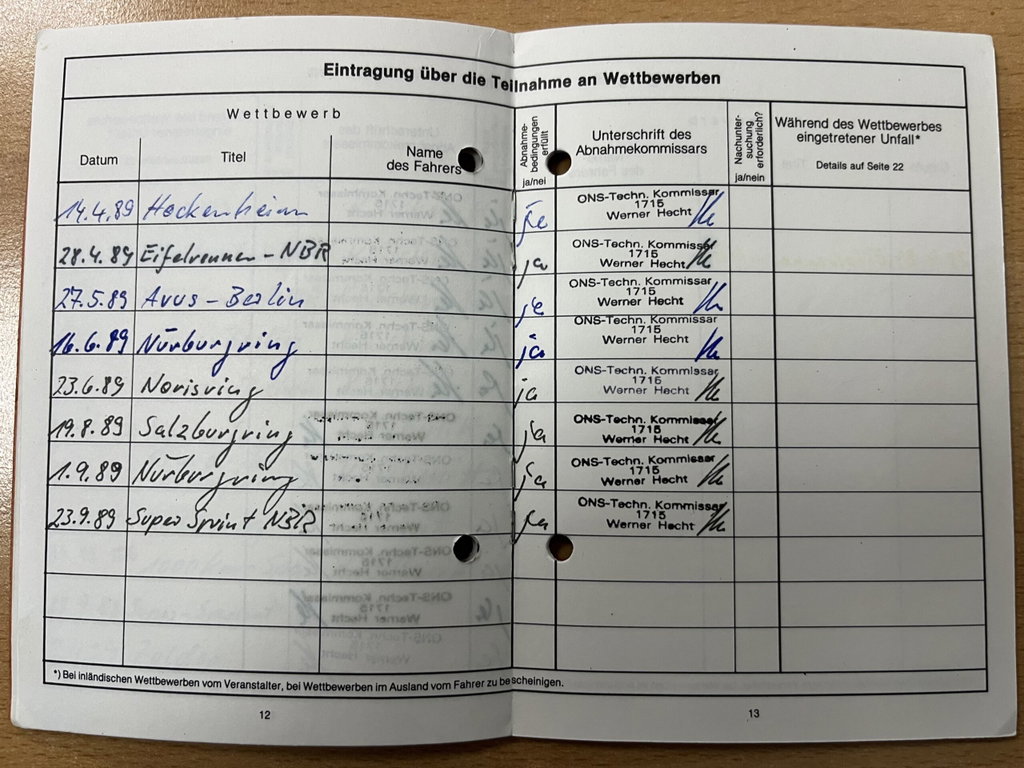 Eintragung über die Teilnahme an Wettbewerben
Wettbewerb
Datum Titel Name des Fahrers Abnahme-bedingungen erfüllt ja/nei Unterschrift des Abnahmekommissars Nachunter-suchung erforderlich? ja/nein Während des Wettbewerbes eingetretener Unfall* Details auf Seite 22
14.4.89 Hockenheim ja ONS-Techn. Kommissar 1715 Werner Hecht
28.4.89 Eifelrennen - NBR ja ONS-Techn. Kommissar 1715 Werner Hecht
27.5.89 Avus - Berlin ja ONS-Techn. Kommissar 1715 Werner Hecht
16.6.89 Nürburgring ja ONS-Techn. Kommissar 1715 Werner Hecht
23.6.89 Norisring ja ONS-Techn. Kommissar 1715 Werner Hecht
19.8.89 Salzburgring ja ONS-Techn. Kommissar 1715 Werner Hecht
1.9.89 Nürburgring ja ONS-Techn. Kommissar 1715 Werner Hecht
23.9.89 Super Sprint NBR ja ONS-Techn. Kommissar 1715 Werner Hecht
*) Bei inländischen Wettbewerben vom Veranstalter, bei Wettbewerben im Ausland vom Fahrer zu bescheinigen.
12 13